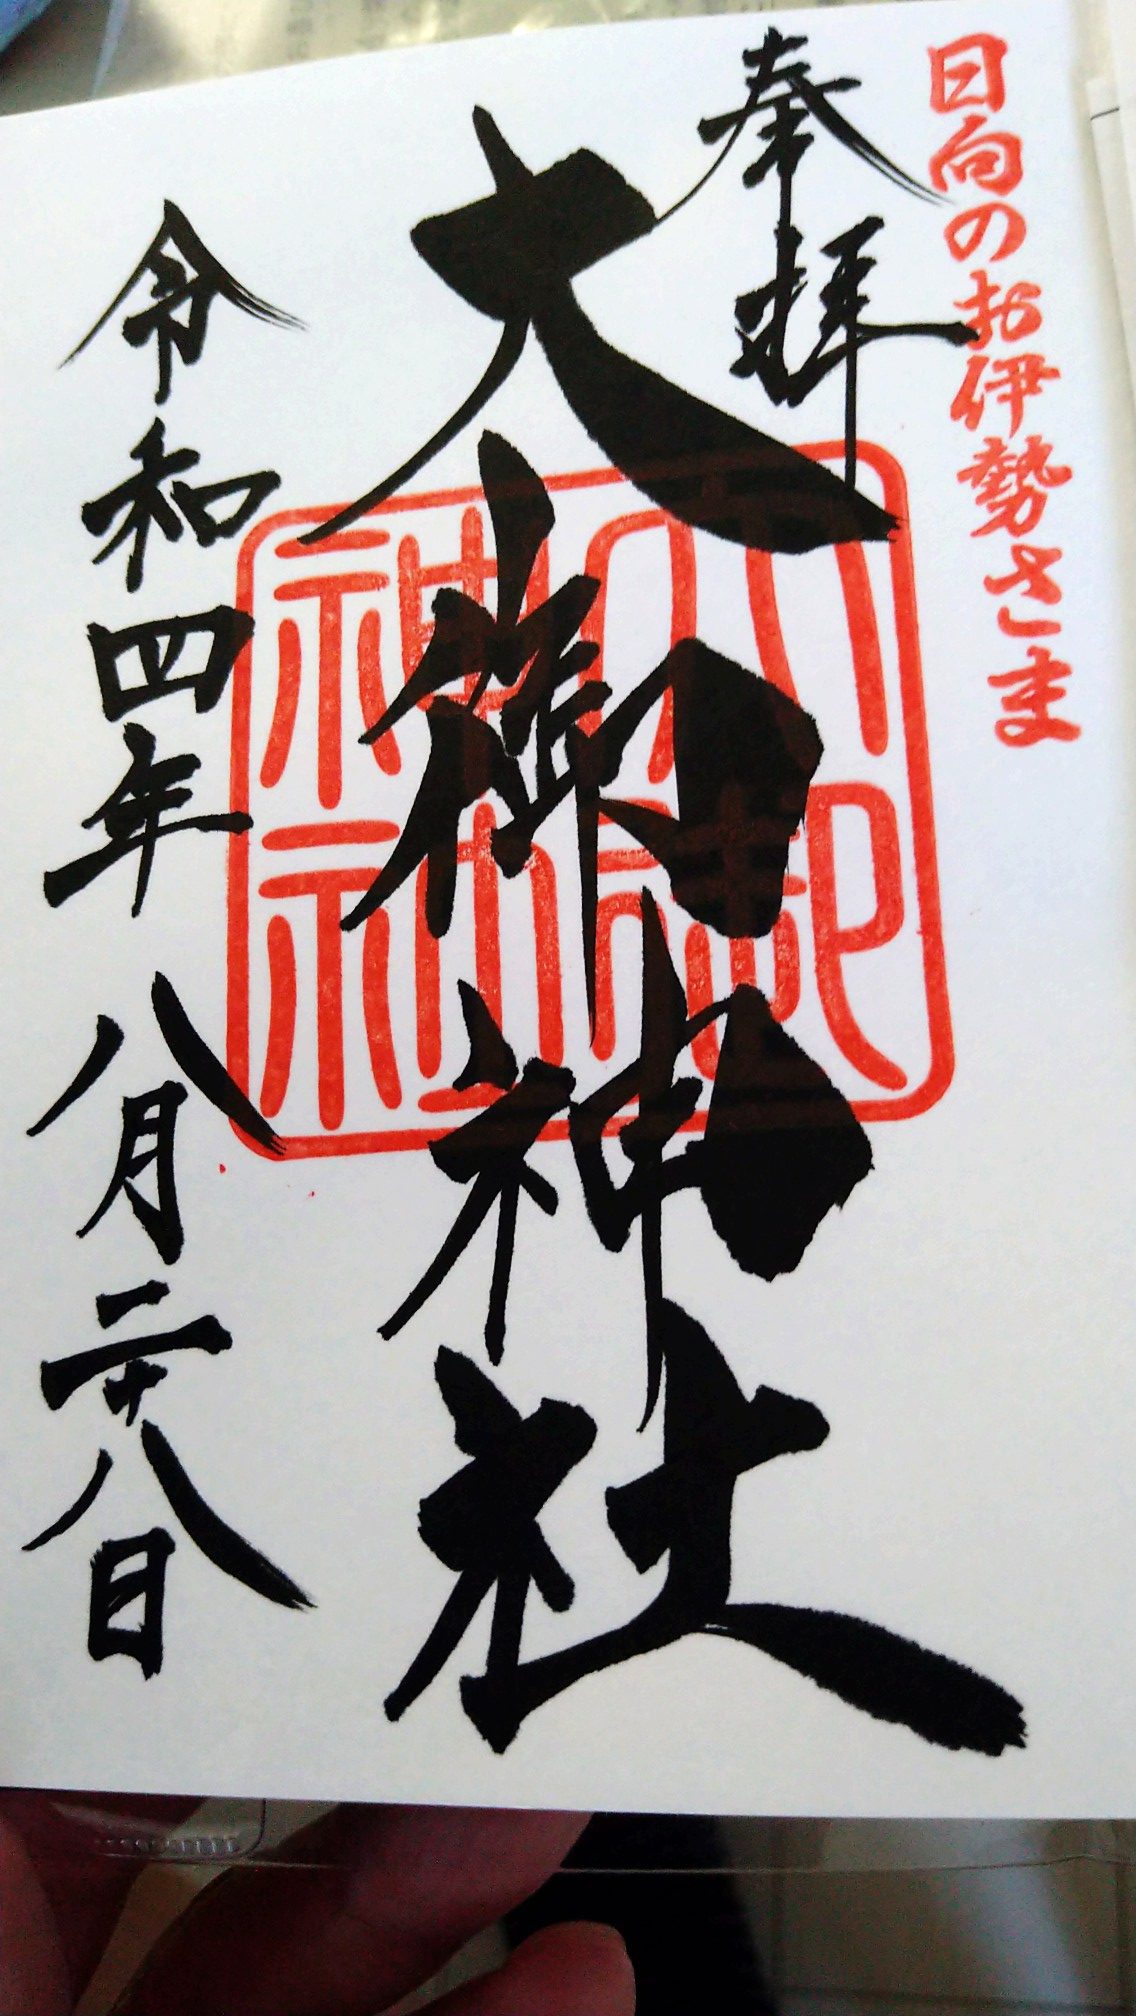 日向のお伊勢さま
奉拝
大御神社
令和四年八月二十八日